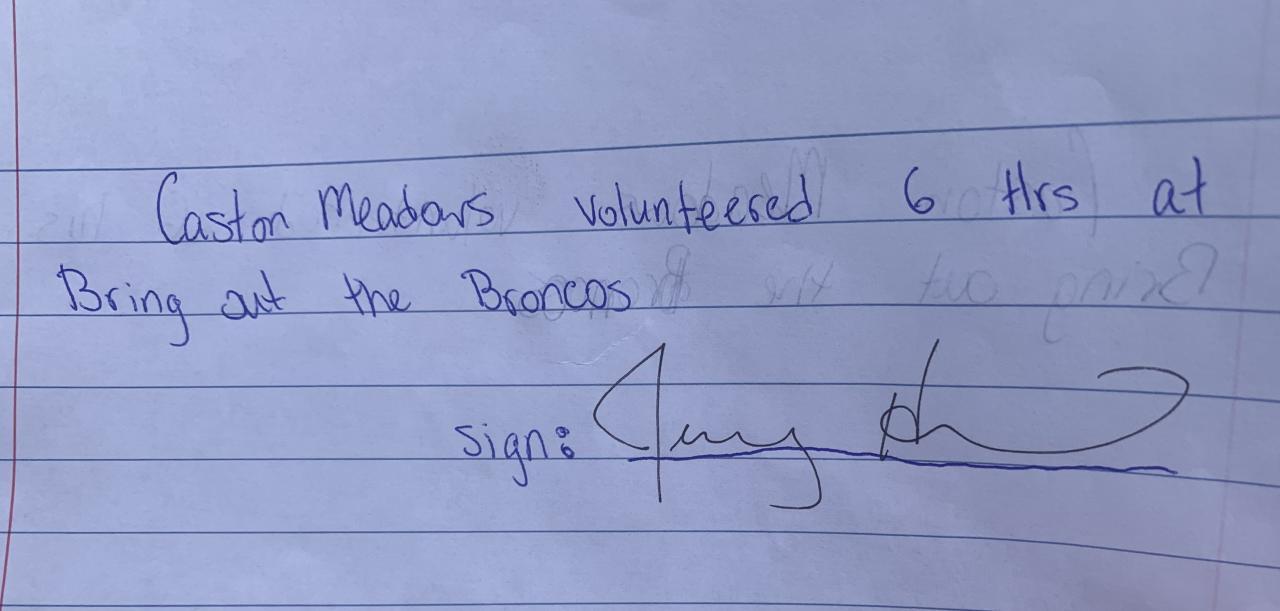 Caston Meadows volunteered 6 Hrs at
Bring out the Broncos
sign: